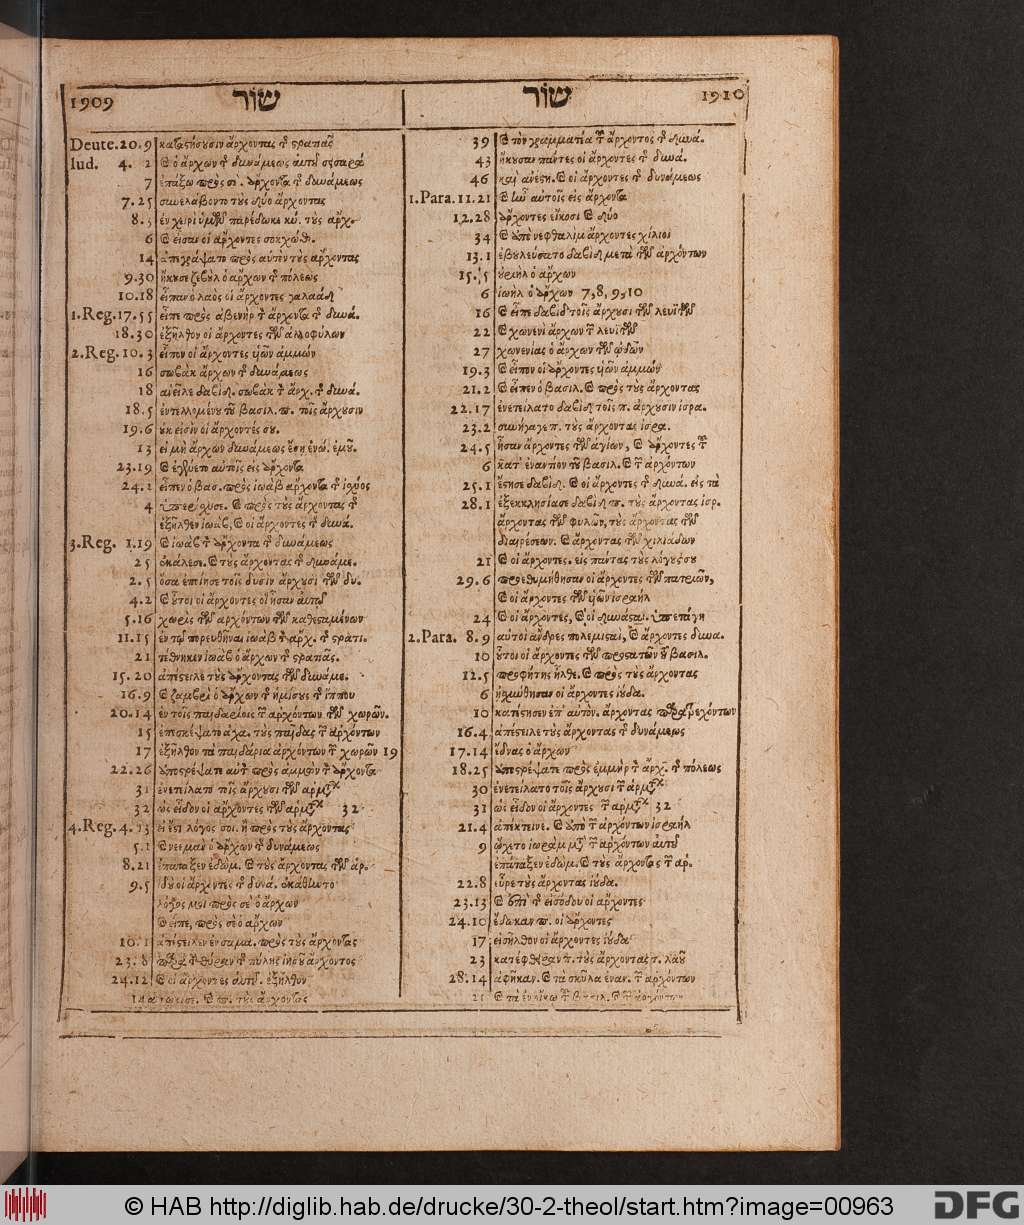 1909 שור
Deute. 20. 9 καταστήσουσιν ἄρχοντας τ στρατιᾶς
Iud. 4. 2 καὶ ὁ ἄρχων τ δυνάμεως αὐτοῦ σισαρά
7 ἐπάξω πρὸς σὲ . ἄρχοντα τ δυνάμεως
7. 25 συνελάβοντο τοὺς δύο ἄρχοντας
8. 3 ἐν χειρὶ ὑμῶν παρέδωκε κύ. τοὺς ἄρχ.
6 καὶ εἶπαν οἱ ἄρχοντες σοκχώθ.
14 ἀπεγράψατο πρὸς αὐτὸν τοὺς ἄρχοντας
9. 30 ἤκουσε ζεβοὺλ ὁ ἄρχων τ πόλεως
10. 18 εἶπαν ὁ λαὸς οἱ ἄρχοντες γαλαάδ
1. Reg. 17. 55 εἶπε πρὸς ἀβενὴρ τ ἄρχοντα τ δυνά.
18. 30 ἐξῆλθον οἱ ἄρχοντες τῶν ἀλλοφύλων
2. Reg. 10. 3 εἶπον οἱ ἄρχοντες υἱῶν ἀμμών
16 σωβὰκ ἄρχων τ δυνάμεως
18 ἀνεῖλε δαβίδ. σωβὰκ τ ἄρχ. τ δυνά.
18. 5 ἐντελλομένου τοῦ βασιλ. π. τοῖς ἄρχουσιν
19. 6 οὐκ εἰσὶν οἱ ἄρχοντές σου.
13 εἰ μὴ ἄρχων δυνάμεως ἔσῃ ἐνώ. ἐμοῦ.
23. 19 καὶ ἐγένετο αὐτοῖς εἰς ἄρχοντα
24. 2 εἶπεν ὁ βασ. πρὸς ἰωὰβ ἄρχοντα τ ἰσχύος
4 ὑπερίσχυσε. καὶ πρὸς τοὺς ἄρχοντας τ
ἐξῆλθεν ἰωάβ, καὶ οἱ ἄρχοντες τ δυνά.
3. Reg. 1. 19 καὶ ἰωὰβ τ ἄρχοντα τ δυνάμεως
25 ἐκάλεσε. καὶ τοὺς ἄρχοντας τ δυνάμε.
2. 5 ὅσα ἐποίησε τοῖς δυσὶν ἄρχουσι τῶν δυ.
4. 2 καὶ οὗτοι οἱ ἄρχοντες οἳ ἦσαν αὐτῷ
5. 16 χωρὶς τῶν ἀρχόντων τῶν καθεσταμένων
11. 15 ἐν τῷ πορευθῆναι ἰωὰβ τ ἄρχ. τ στρατι.
21 τέθνηκεν ἰωὰβ ὁ ἄρχων τ στρατιᾶς.
15. 20 ἀπέστειλε τοὺς ἄρχοντας τῶν δυνάμε.
16. 9 καὶ ζαμβρὶ ὁ ἄρχων τ ἡμίσους τ ἵππου
20. 14 ἐν τοῖς παιδαρίοις τ ἀρχόντων τῶν χωρῶν.
15 ἐπεσκέψατο ἀχα. τοὺς παῖδας τ ἀρχόντων
17 ἐξῆλθον τὰ παιδάρια ἀρχόντων τ χωρῶν 19
22. 26 ὑποστρέψατε αὐτ πρὸς ἀμμὼν τ ἄρχοντα
31 ἐνετείλατο τοῖς ἄρχουσι τῶν
32 ὡς εἶδον οἱ ἄρχοντες τῶν 32
4. Reg. 4. 13 εἰ ἔστι λόγος σοι. ἢ πρὸς τοὺς ἄρχοντας
5. 1 καὶ νεεμὰν ὁ ἄρχων τ δυνάμεως
8. 21 ἐπάταξεν ἐδώμ. καὶ τοὺς ἄρχοντας τῶν ἁρ.
9. 5 ἰδοὺ οἱ ἄρχοντες τ δυνά. ἐκάθηντο
λόγος μοι πρὸς σὲ ὁ ἄρχων
καὶ εἶπε, πρὸς σὲ ὁ ἄρχων
10. 1 ἀπέστειλεν ἐν σαμα. πρὸς τοὺς ἄρχοντας
23. 8 τ πύλης ἰησοῦ ἄρχοντος
24. 12 καὶ οἱ ἄρχοντες αὐτοῦ. ἐξῆλθον
14 ἀπῴκισε. καὶ π. τοὺς ἄρχοντας
שור 1910
39 καὶ τὸν γραμματέα τ ἄρχοντος τ δυνά.
43 ἤκουσαν πάντες οἱ ἄρχοντες τ δυνά.
46 καὶ ἀνέστη. καὶ οἱ ἄρχοντες τ δυνάμεως
1. Para. 11. 21 καὶ ἦν αὐτοῖς εἰς ἄρχοντα
12. 28 ἄρχοντες εἴκοσι καὶ δύο
34 καὶ ὑπὸ νεφθαλὶμ ἄρχοντες χίλιοι
13. 1 ἐβουλεύσατο δαβὶδ μετὰ τῶν ἀρχόντων
15. 5 οὐριὴλ ὁ ἄρχων
6 ἰωὴλ ὁ ἄρχων 7, 8, 9, 10
16 καὶ εἶπε δαβὶδ τοῖς ἄρχουσι τῶν λευϊτῶν
22 καὶ χωνενὶ ἄρχων τ λευϊτῶν
27 χωνενίας ὁ ἄρχων τῶν ᾠδῶν
19. 3 καὶ εἶπον οἱ ἄρχοντες υἱῶν ἀμμών
21. 2 καὶ εἶπεν ὁ βασιλ. καὶ πρὸς τοὺς ἄρχοντας
22. 17 ἐνετείλατο δαβὶδ τοῖς π. ἄρχουσιν ἰσρα.
23. 2 συνήγαγε π. τοὺς ἄρχοντας ἰσρα.
24. 5 ἦσαν ἄρχοντες τῶν ἁγίων, καὶ ἄρχοντες τ
6 κατ᾽ ἐναντίον τοῦ βασιλ. καὶ τ ἀρχόντων
25. 1 ἔστησε δαβὶδ. καὶ οἱ ἄρχοντες τ δυνά. εἰς τὰ
28. 1 ἐξεκκλησίασε δαβὶδ π. τοὺς ἄρχοντας ἰσρ.
ἄρχοντας τῶν φυλῶν, τοὺς ἄρχοντας τῶν
διαιρέσεων. καὶ ἄρχοντας τῶν χιλιάδων
21 καὶ οἱ ἄρχοντες. εἰς πάντας τοὺς λόγους σου
29. 6 προεθυμήθησαν οἱ ἄρχοντες τῶν πατριῶν,
καὶ οἱ ἄρχοντες τῶν υἱῶν ἰσραήλ
24 καὶ οἱ ἄρχοντες, καὶ οἱ δυνάσται. ὑπετάγη
2. Para. 8. 9 αὐτοὶ ἄνδρες πολεμισταί, καὶ ἄρχοντες δυνα.
10 οὗτοι οἱ ἄρχοντες τῶν προστατῶν τοῦ βασιλ.
12. 5 προφήτης ἦλθε. καὶ πρὸς τοὺς ἄρχοντας
6 ᾐσχύνθησαν οἱ ἄρχοντες ἰούδα.
10 κατέστησεν ἐπ᾽ αὐτὸν. ἄρχοντας παρατρεχόντων
16. 4 ἀπέστειλε τοὺς ἄρχοντας τ δυνάμεως
17. 14 ἔδνας ὁ ἄρχων
18. 25 ὑποστρέψατε πρὸς ἐμμὴρ τ ἄρχ. τ πόλεως
30 ἐνετείλατο τοῖς ἄρχουσι τ
31 ὡς εἶδον οἱ ἄρχοντες τ 32
21. 4 ἀπέκτεινε. καὶ ὑπὸ τ ἀρχόντων ἰσραήλ
9 ᾤχετο ἰωρὰμ μετὰ τ ἀρχόντων αὐτοῦ
ἐπάταξεν ἐδώμ. καὶ τοὺς ἄρχοντας τ ἁρ.
22. 8 εὗρε τοὺς ἄρχοντας ἰούδα.
23. 13 καὶ ἐπὶ τ εἰσόδου οἱ ἄρχοντες
24. 10 ἔδωκαν π. οἱ ἄρχοντες
17 εἰσῆλθον οἱ ἄρχοντες ἰούδα
23 κατέφθειραν π. τοὺς ἄρχοντας τ. λαοῦ
28. 14 ἀφῆκαν. καὶ τὰ σκῦλα ἐναν. τ ἀρχόντων
21 καὶ τὰ ἐν οἴκῳ τ βασιλ. καὶ τ ἀρχόντων
© HAB http://diglib.hab.de/drucke/30-2-theol/start.htm?image=00963
DFG